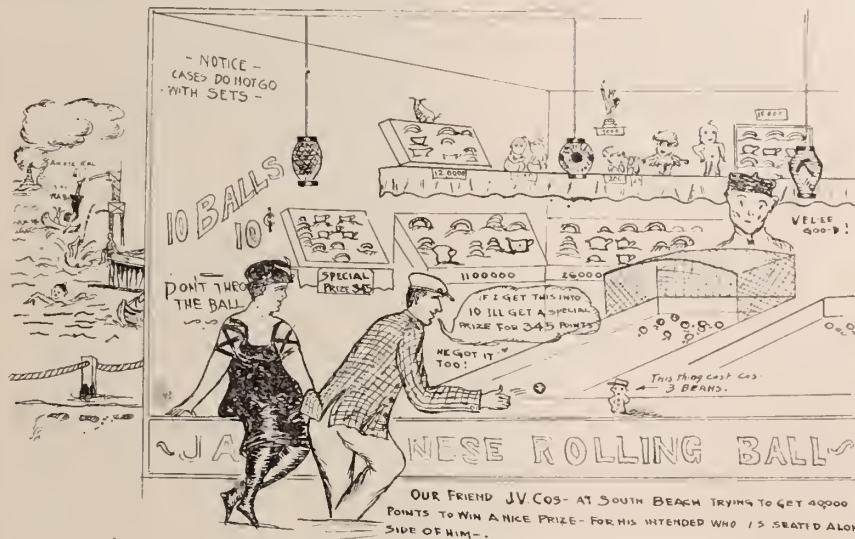 - NOTICE -
CASES DO NOT GO
- WITH SETS -
10 BALLS
10¢
DON'T THRO
THE BALL
SPECIAL
PRIZE 345
12 0000
1100000
26000
VELEE
GOO-D!
IF I GET THIS INTO
10 ILL GET A SPECIAL
PRIZE FOR 345 POINTS
HE GOT IT
TOO!
This thing cost Cos-
3 BEANS.
~JA NESE ROLLING BALL~
OUR FRIEND J.V. COS- AT SOUTH BEACH TRYING TO GET 40,000
POINTS TO WIN A NICE PRIZE- FOR HIS INTENDED WHO IS SEATED ALON
SIDE OF HIM-.